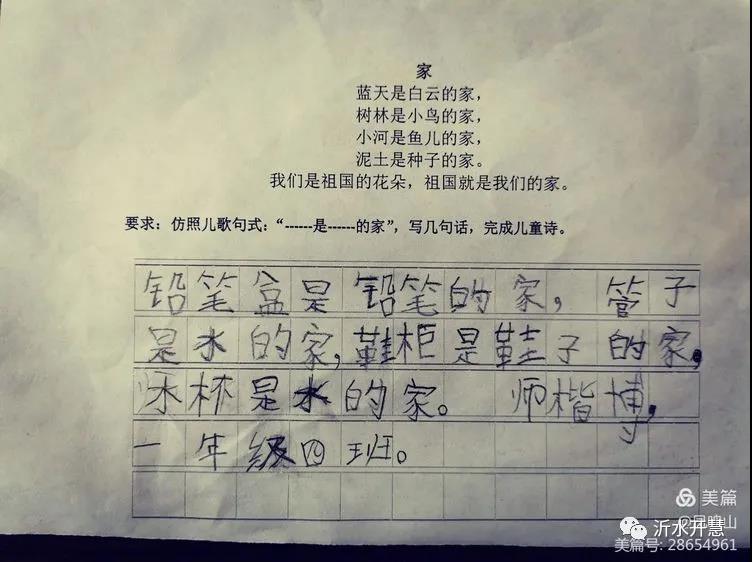 家
蓝天是白云的家，
树林是小鸟的家，
小河是鱼儿的家，
泥土是种子的家。
我们是祖国的花朵，祖国就是我们的家。
要求：仿照儿歌句式：“------是------的家”，写几句话，完成儿童诗。
铅笔盒是铅笔的家，管子
是水的家，鞋柜是鞋子的家，
杯是水的家。师楷博，
一年级四班。
美篇
沂水开慧
美篇号: 28654961